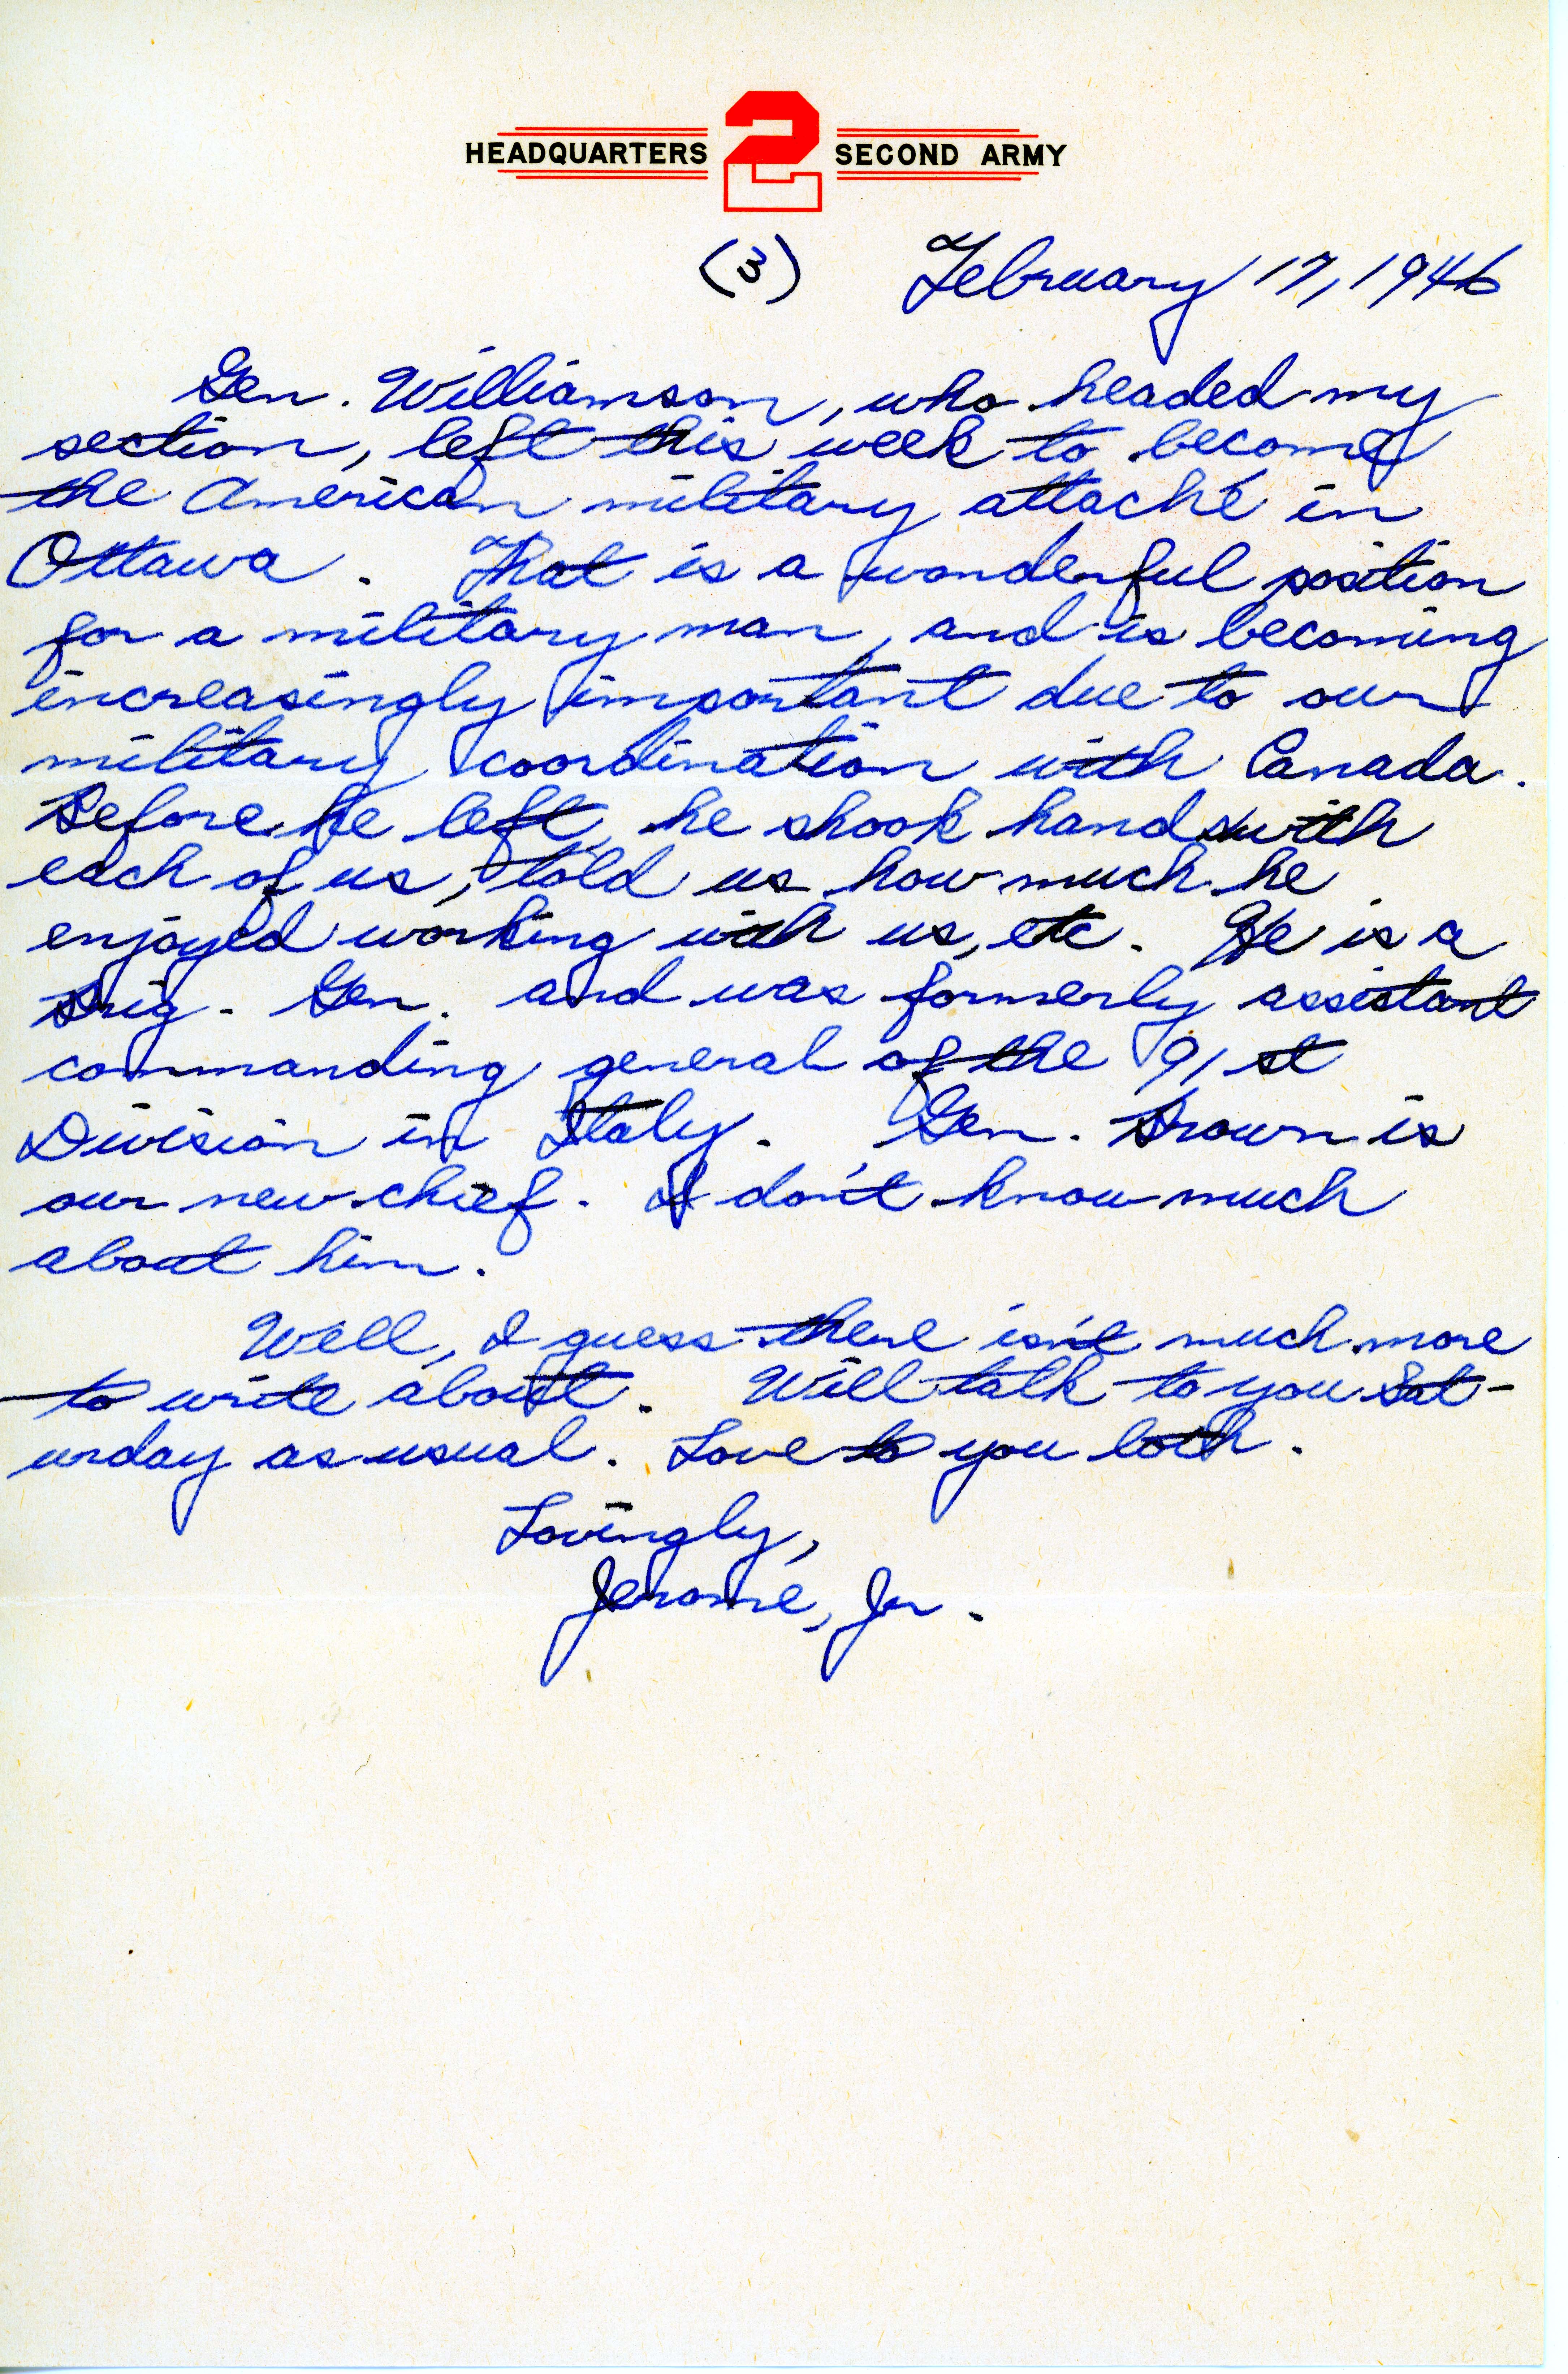 HEADQUARTERS 2 SECOND ARMY
(3) February 17, 1946
Gen. Williamson, who headed my
section, left this week to become
the American military attaché in
Ottawa. That is a wonderful position
for a military man, and is becoming
increasingly important due to our
military coordination with Canada.
Before he left, he shook hands with
each of us, told us how much he
enjoyed working with us, etc. He is a
Brig. Gen. and was formerly assistant
commanding general of the 91st
Division in Italy. Gen. Brown is
our new chief. I don't know much
about him.
Well, I guess there isn't much more
to write about. Will talk to you Sat-
urday as usual. Love to you both.
Lovingly,
Jerome, Jr.